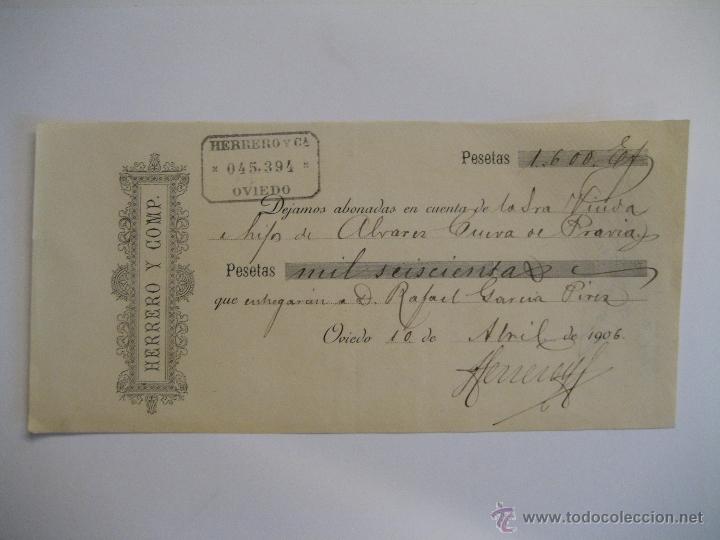 HERRERO Y COMP.
HERRERO Y Cª
* 045.394 *
OVIEDO
Pesetas 1.600.
Dejamos abonadas en cuenta de la Sra Viuda
e hijos de Alvarez Cueva de Pravia
Pesetas mil seiscientas
que entregarán a D. Rafael Garcia Pirez
Oviedo 10 de Abril de 1906.
todocoleccion
www.todocoleccion.net